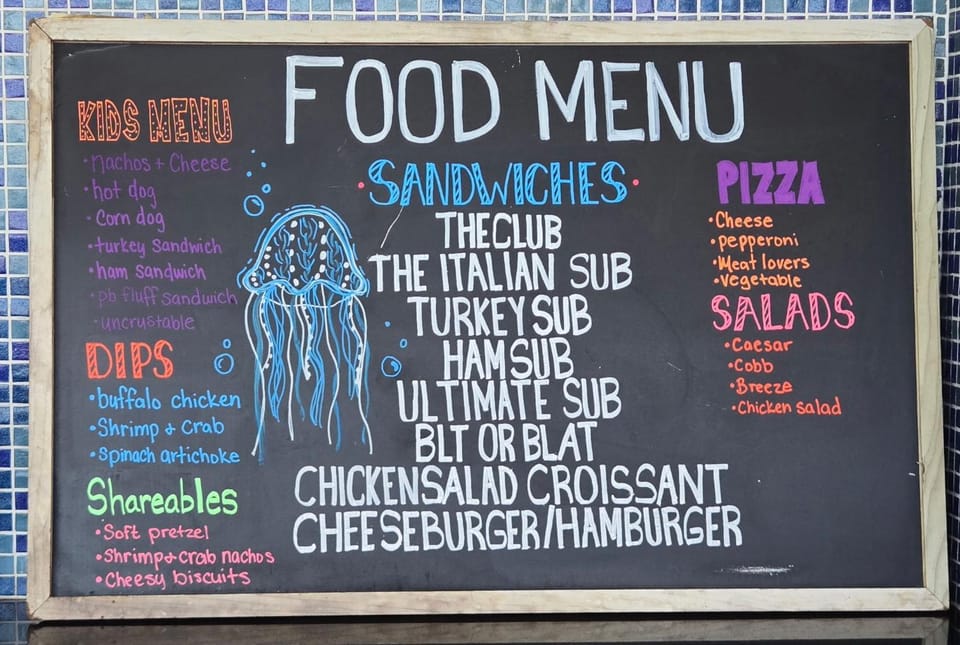 FOOD MENU
KIDS MENU
• nachos + Cheese
• hot dog
• Corn dog
• turkey sandwich
• ham sandwich
• pb fluff sandwich
• uncrustable
DIPS
• buffalo chicken
• Shrimp & Crab
• Spinach artichoke
Shareables
• Soft pretzel
• Shrimp & crab nachos
• Cheesy biscuits
• SANDWICHES •
THE CLUB
THE ITALIAN SUB
TURKEY SUB
HAM SUB
ULTIMATE SUB
BLT OR BLAT
CHICKEN SALAD CROISSANT
CHEESEBURGER/HAMBURGER
PIZZA
• Cheese
• pepperoni
• Meat lovers
• Vegetable
SALADS
• Caesar
• Cobb
• Breeze
• Chicken salad